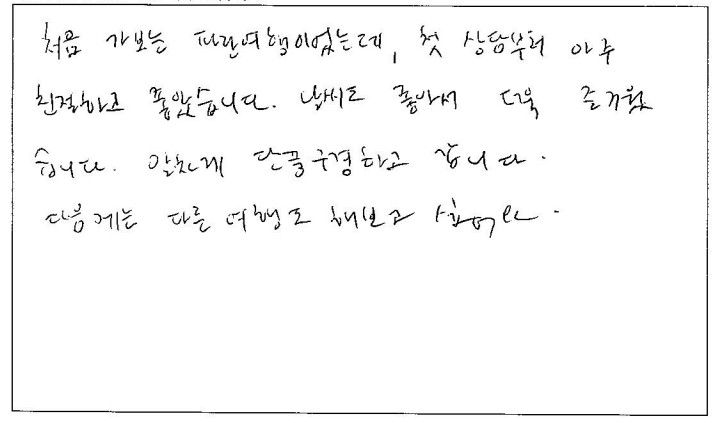 처음 가보는 파란여행이었는데, 첫 상담부터 아주
친절하고 좋았습니다. 날씨도 좋아서 더욱 즐거웠
습니다. 알차게 단풍구경하고 갑니다.
다음에는 다른 여행도 해보고 싶어요.